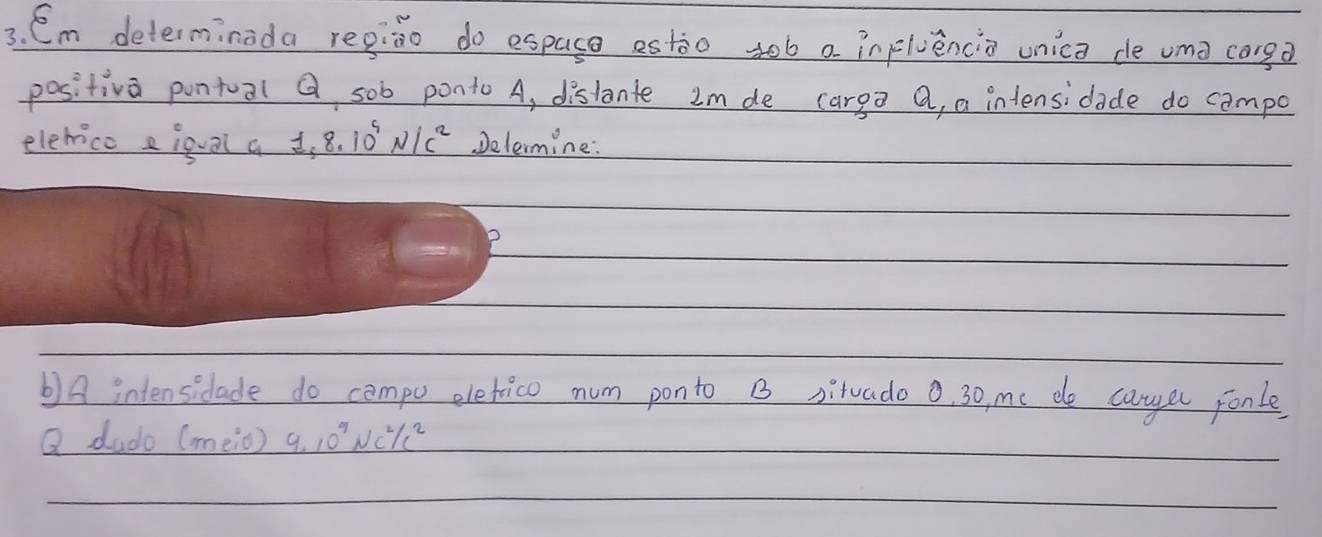 3. Em determinada região do espaço estão sob a influência unica de uma carga
positiva puntual Q, sob ponto A, distante 2m de carga Q, a intensidade do campo
eletrico e igual a 1,8.10⁵ N/C² Determine:
?
b) A intensidade do campo eletrico num ponto B situado 0,30,mc de carga fonte
Q dado (meio) 9.10⁹ Nc²/c²